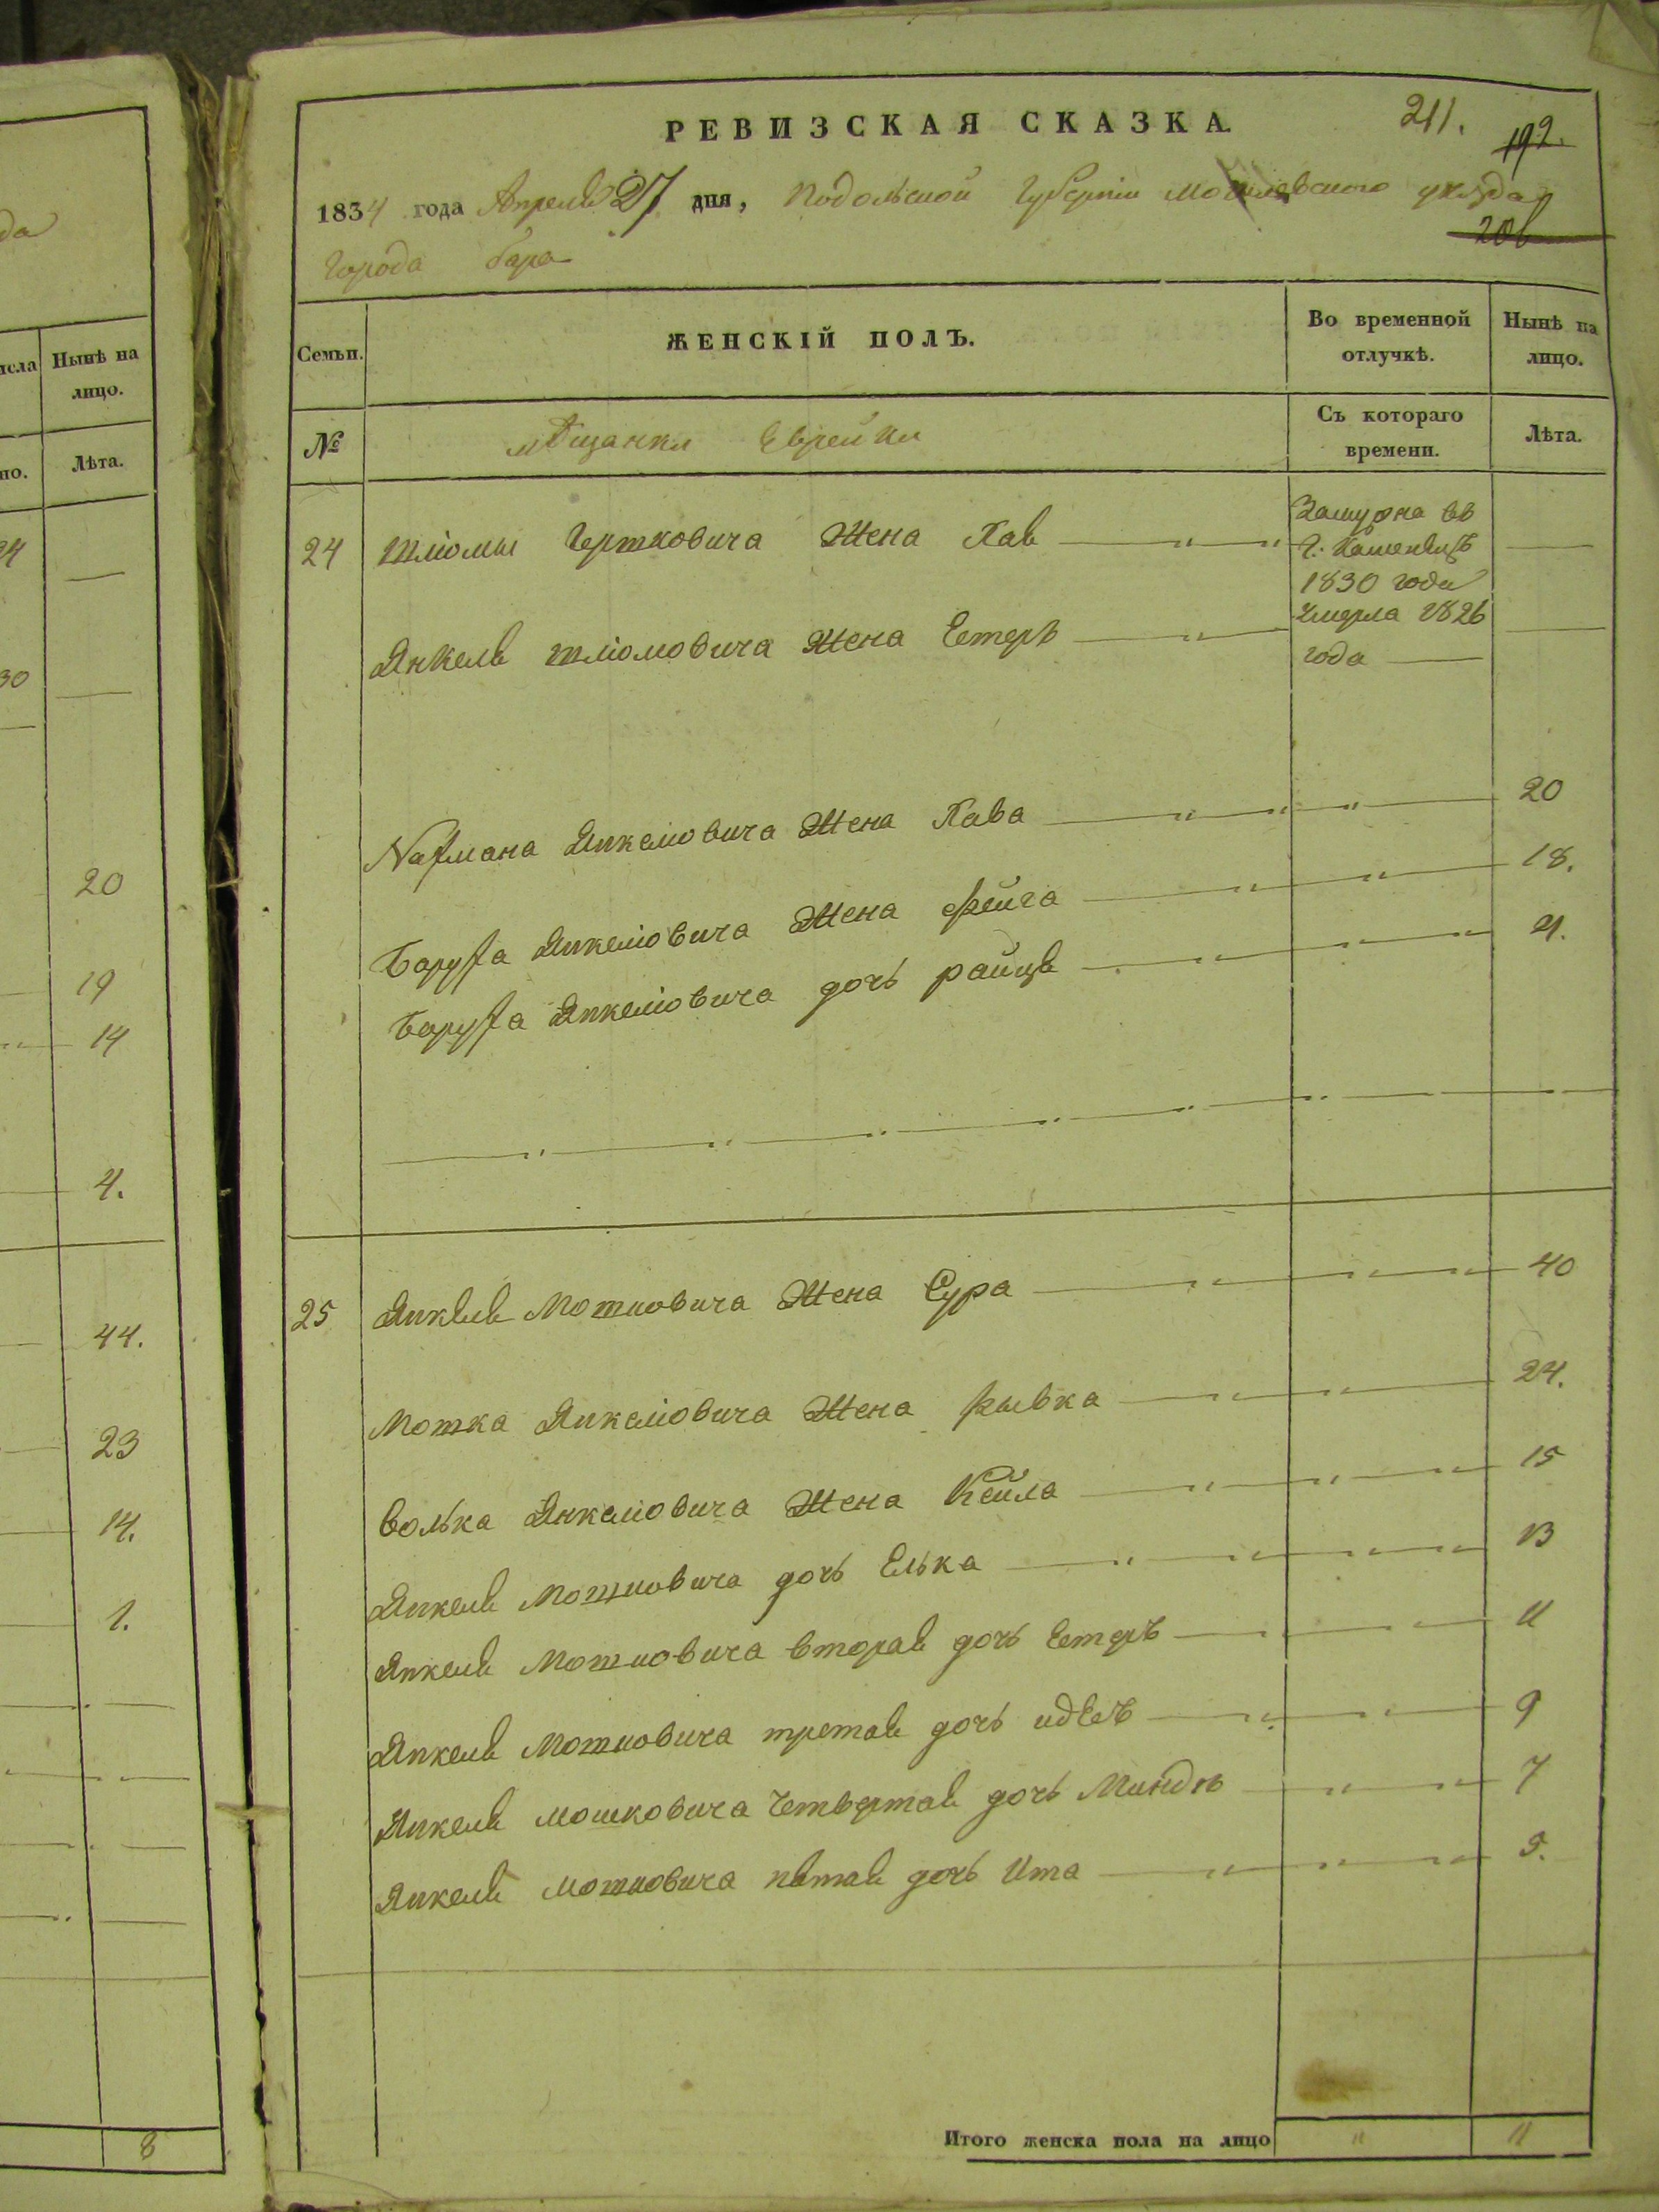 да
исла
Нынѣ на
лицо.
но.
Лѣта.
24
30
20
19
14
4.
44.
23
14.
1.
8
РЕВИЗСКАЯ СКАЗКА.
211.
192.
1834 года Апреля 27 дня, Подольской Губерніи Могилевского уѣзда
206
города бара
Семьи.
ЖЕНСКІЙ ПОЛЪ.
Во временной
отлучкѣ.
Нынѣ на
лицо.
№
мѣщанки Еврейки
Съ котораго
времени.
Лѣта.
24 Шліомы Гершковича Жена Хая
Замужна въ
1830 года
Янкеля шліомовича Жена Естеръ
умерла 1826
года
Нахмана Янкеліовича Жена Хава 20
Баруха Янкеліовича Жена Фейга 18.
Баруха Янкеліовича дочь райця 4.
25 Янкеля Мошковича Жена Сура 40
Мошка Янкеліовича Жена рывка 24.
Волька Янкеліовича Жена Кейла 15
Янкеля Мошковича дочь Елька 13
Янкеля Мошковича вторая дочь Естеръ 11
Янкеля Мошковича третая дочь идесъ 9
Янкеля мошковича Четвертая дочь Миндля 7
Янкеля мошковича пятая дочь Ита 5.
Итого женска пола на лицо 11